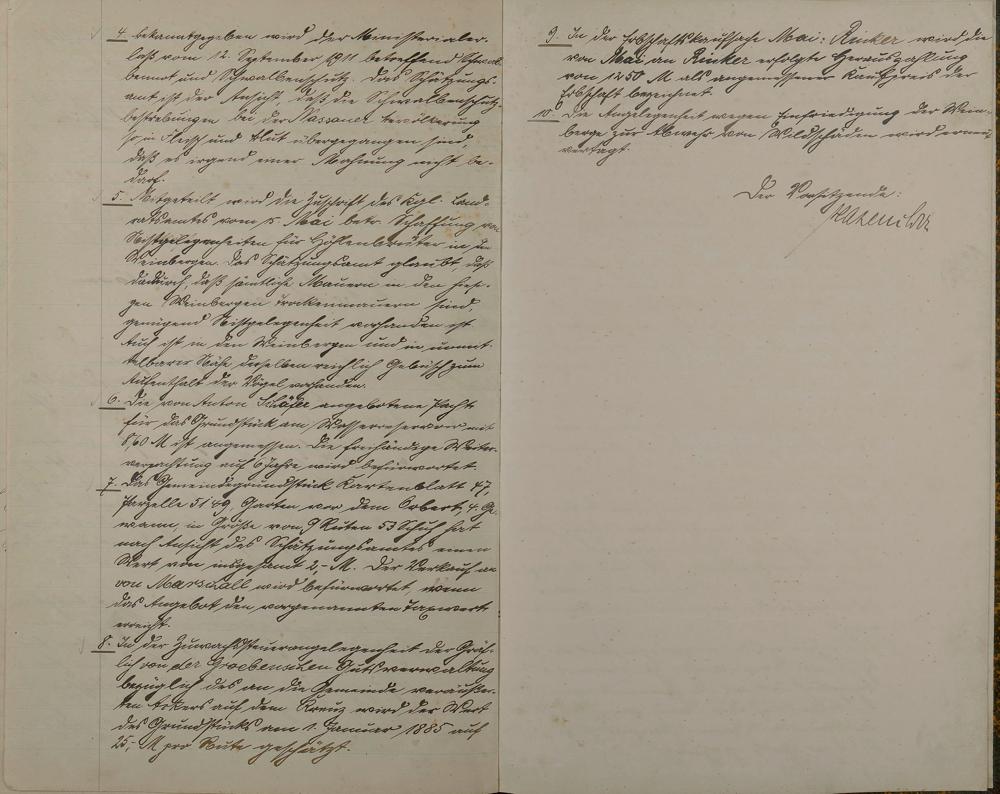 4. bekanntgegeben wird der Ministerialer-
laß vom 12. September 1911 betreffend Schwal-
bennot und Schwalbenschutz. Das Schätzungs-
amt ist der Ansicht, daß die Schwalbenschutz-
bestrebungen bei der Nassauer Bevölkerung
so in Fleisch und Blut übergegangen sind,
daß es irgend einer Mahnung nicht be-
darf.
5. Mitgeteilt wird die Zuschrift des Kgl. Land-
ratsamtes vom 5. Mai betr. Schaffung von
Nistgelegenheiten für Höhlenbrüter in den
Weinbergen. Das Schätzungsamt glaubt, daß
dadurch, daß sämtliche Mauern in den hiesi-
gen Weinbergen Trockenmauern sind,
genügend Nistgelegenheit vorhanden ist
Auch ist in den Weinbergen und in unmit-
telbarer Nähe derselben reichlich Gebüsch zum
Aufenthalt der Vögel vorhanden.
6. Die von Anton Schäfer angebotene Pacht
für das Grundstück am Wasserreservoir mit
M ist angemessen. Die freihändige Weiter-
verpachtung auf 6 Jahre wird befürwortet.
7. Das Gemeindegrundstück Kartenblatt 47,
Parzelle 5149, Garten vor dem 4. Ge-
wann, in Größe von 9 Ruten 53 Schuh hat
nach Ansicht des Schätzungsamtes einen
Wert von insgesamt 2,- M. Der Verkauf an
von Marschall wird befürwortet, wenn
das Angebot den vorgenannten Taxwert
erreicht.
8. In der Zuwachssteuerangelegenheit der Gräf-
lich von der Groebenschen Gutsverwaltung
bezüglich des an die Gemeinde veräußer-
ten Ackers auf dem Kreuz wird der Wert
des Grundstücks am 1. Januar 1885 auf
25,- M pro Rute geschätzt.
9. In der Erbschaftskaufsache Mai: Rinker wird die
von Mai an Rinker erfolgte Herauszahlung
von 1250 M als angemessener Kaufpreis der
Erbschaft bezeichnet.
10. Die Angelegenheit wegen Einfriedigung der Wein-
berge zur Abwehr von Wildschäden wird erneut
vertagt.
Der Vorsitzende: